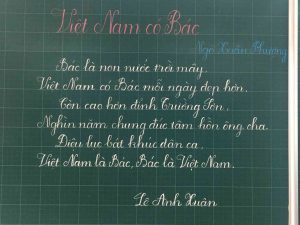 Việt Nam có Bác
Ngô Xuân Phương
Bác là non nước trời mây,
Việt Nam có Bác mỗi ngày đẹp hơn.
Còn cao hơn đỉnh Trường Sơn,
Nghìn năm chung đúc tâm hồn ông cha.
Điệu lục bát khúc dân ca,
Việt Nam là Bác, Bác là Việt Nam.
Lê Anh Xuân